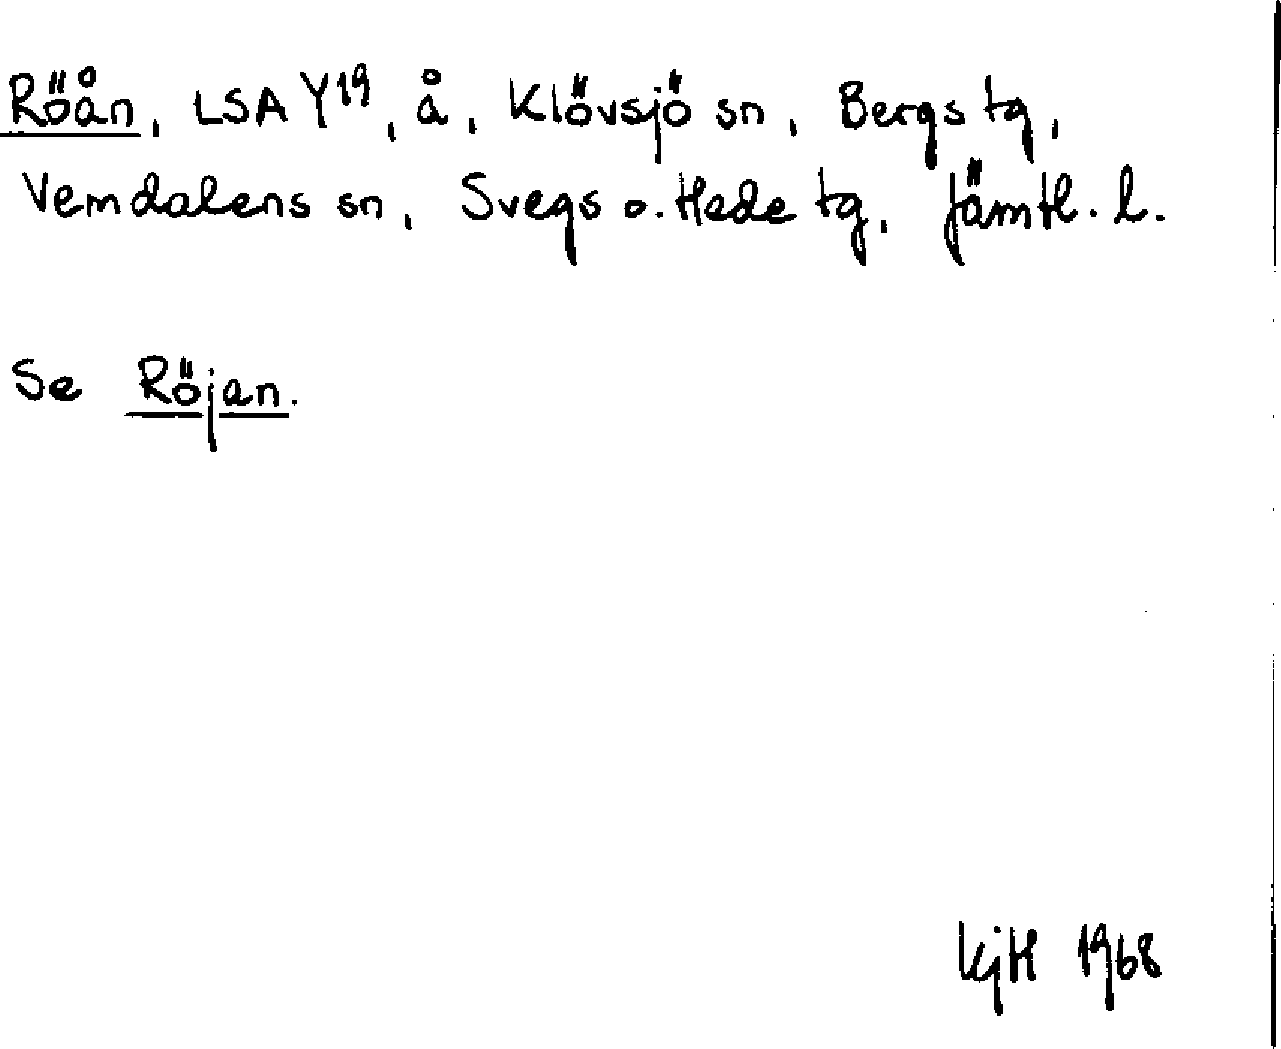 Röån, LSA Y19, å, Klövsjö sn, Bergs tg,
Vemdalens sn, Svegs o. Hede tg, Jämtl. l.
Se Röjan.
KjH 1968